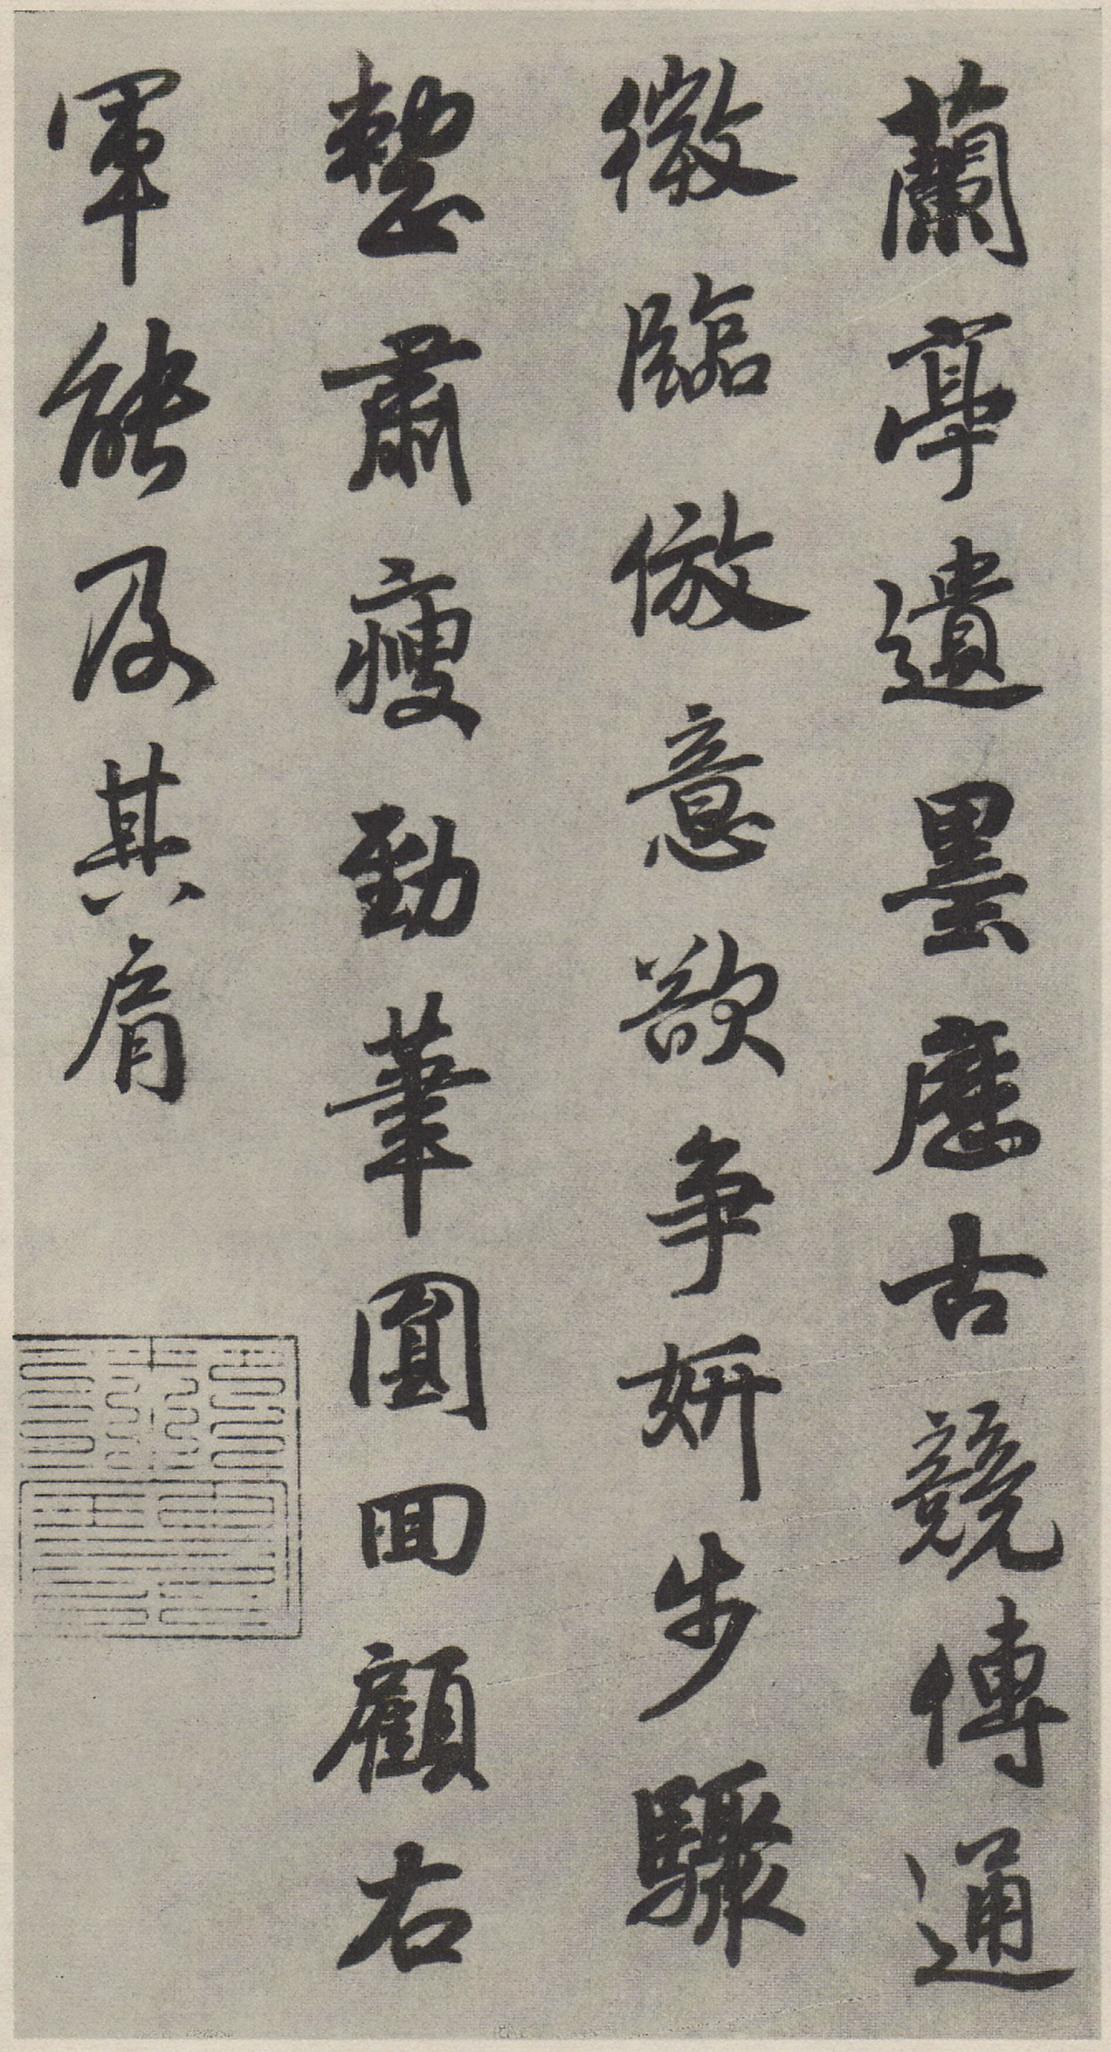 蘭亭遺墨歷古競傳通
微臨倣意欲爭妍步驟
整肅瘦勁筆圓回顧右
軍能及其肩